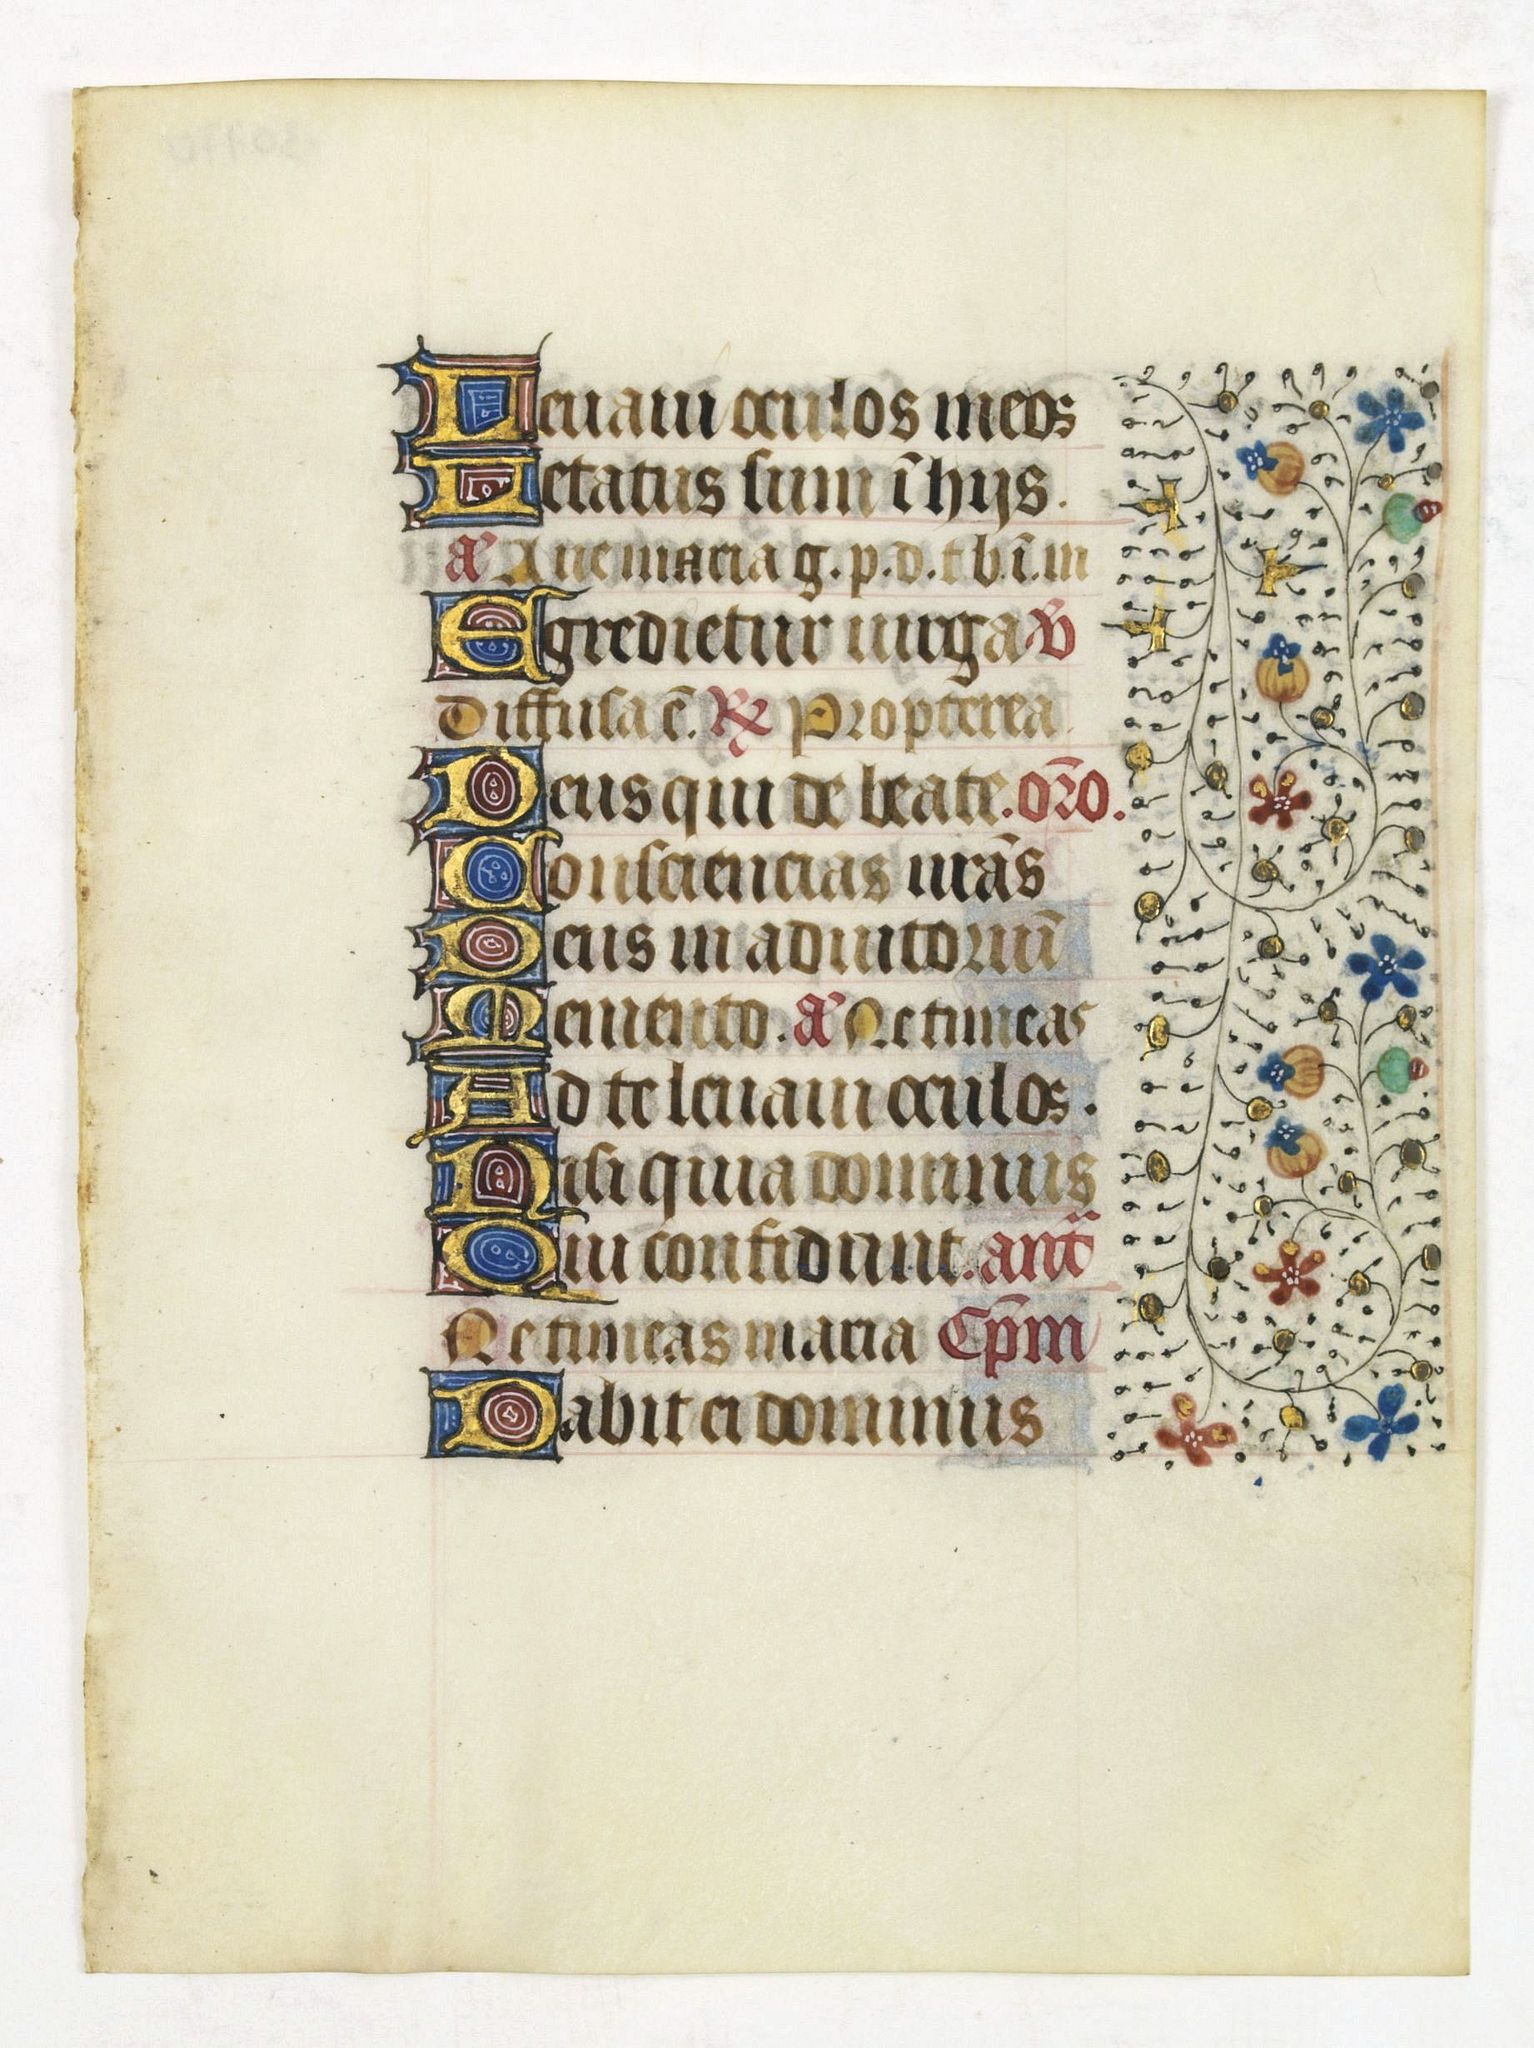 Leuaui oculos meos
Letatus sum ī hijs.
a͛ Aue maria g. p. d. t b. ī. m
Egredietur uirga ℣
Diffusa ē. ℟ Propterea
Deus qui de beate. or̄o.
Consciencias nr̄as
Deus in adiutoriū
Memento. a͛ Ne timeas
Ad te leuaui oculos.
Nisi quia dominus
Qui confidunt. ant̄
Ne timeas maria Cp̄m
Dabit ei dominus